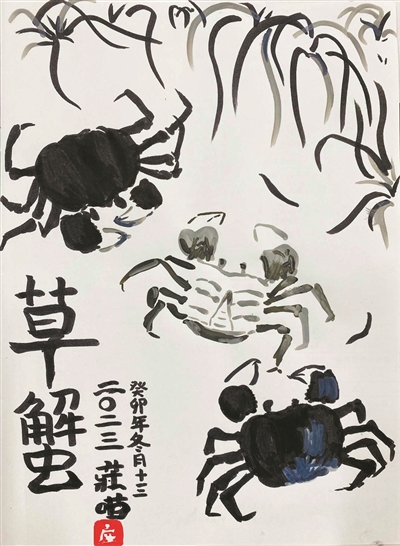 草蟹
癸卯年冬月十三
二〇二三 莊
庄